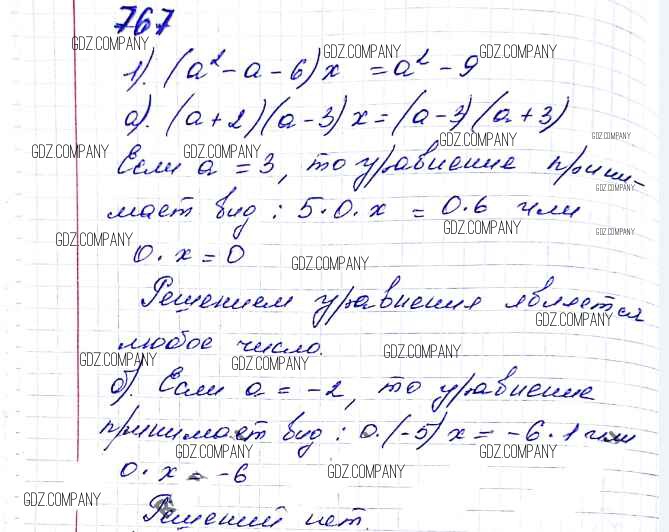 767
GDZ.COMPANY GDZ.COMPANY GDZ.COMPANY
1). (a² - a - 6) x = a² - 9
а). (a + 2)(a - 3) x = (a - 3)(a + 3)
GDZ.COMPANY GDZ.COMPANY
GDZ.COMPANY GDZ.COMPANY
Если a = 3, то уравнение прини-
GDZ.COMPANY
мает вид: 5·0·x = 0·6 или
GDZ.COMPANY GDZ.COMPANY GDZ.COMPANY
0·x = 0
GDZ.COMPANY
Решением уравнения является
GDZ.COMPANY
любое число.
GDZ.COMPANY GDZ.COMPANY GDZ.COMPANY
б). Если a = -2, то уравнение
принимает вид: 0·(-5) x = -6·1 или
GDZ.COMPANY GDZ.COMPANY
0·x = -6
GDZ.COMPANY GDZ.COMPANY
Решений нет.